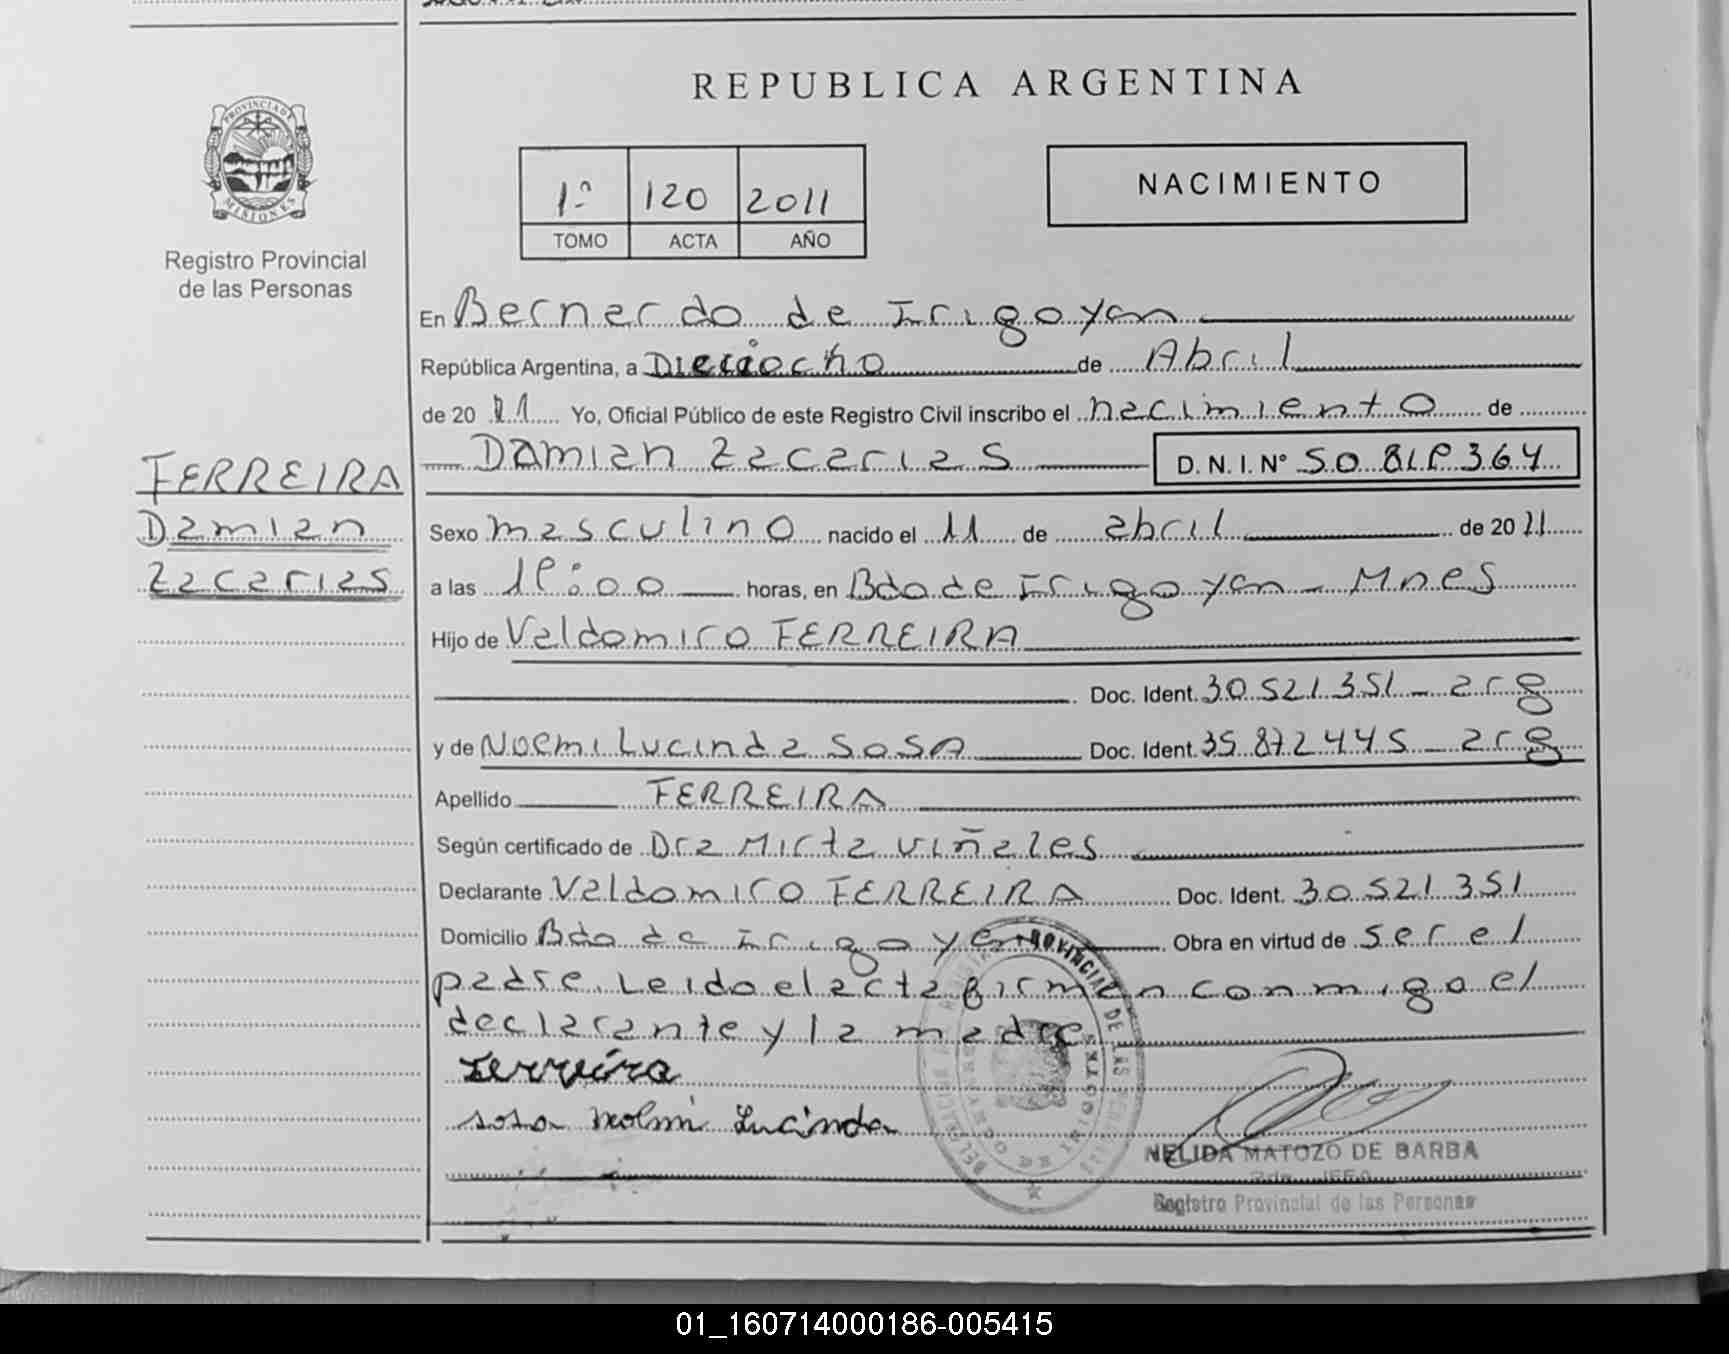 REPUBLICA ARGENTINA
PROVINCIA DE
MISIONES
Registro Provincial
de las Personas
1º 120 2011
TOMO ACTA AÑO
NACIMIENTO
En Bernardo de Irigoyen
República Argentina, a Dieciocho de Abril
de 20 11 Yo, Oficial Público de este Registro Civil inscribo el nacimiento de
Damian Zacarias D.N.I.Nº
FERREIRA
Damian
Zacarias
Sexo masculino nacido el 11 de abril de 20 11
a las horas, en Bdo de Irigoyen - Mnes
Hijo de Valdomiro FERREIRA
Doc. Ident. 30.521.351 - arg
y de Noemi Lucinda SOSA Doc. Ident. 35.872.445 - arg
Apellido FERREIRA
Según certificado de Dra Mirta Viñales
Declarante Valdomiro FERREIRA Doc. Ident. 30.521.351
Domicilio Bdo de Irigoyen Obra en virtud de ser el
padre. Leido el acta firman conmigo el
declarante y la madre
Ferreira
sosa Noemi Lucinda
NELIDA MATOZO DE BARBA
Registro Provincial de las Personas
01_160714000186-005415